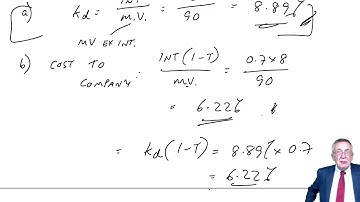 a) kd = INT / M.V. = / 90 = 8.89%
MV EX INT.
b) COST TO COMPANY: INT(1-T) / M.V. = 0.7 x 8 / 90
= 6.22%
= kd(1-T) = 8.89% x 0.7
= 6.22%